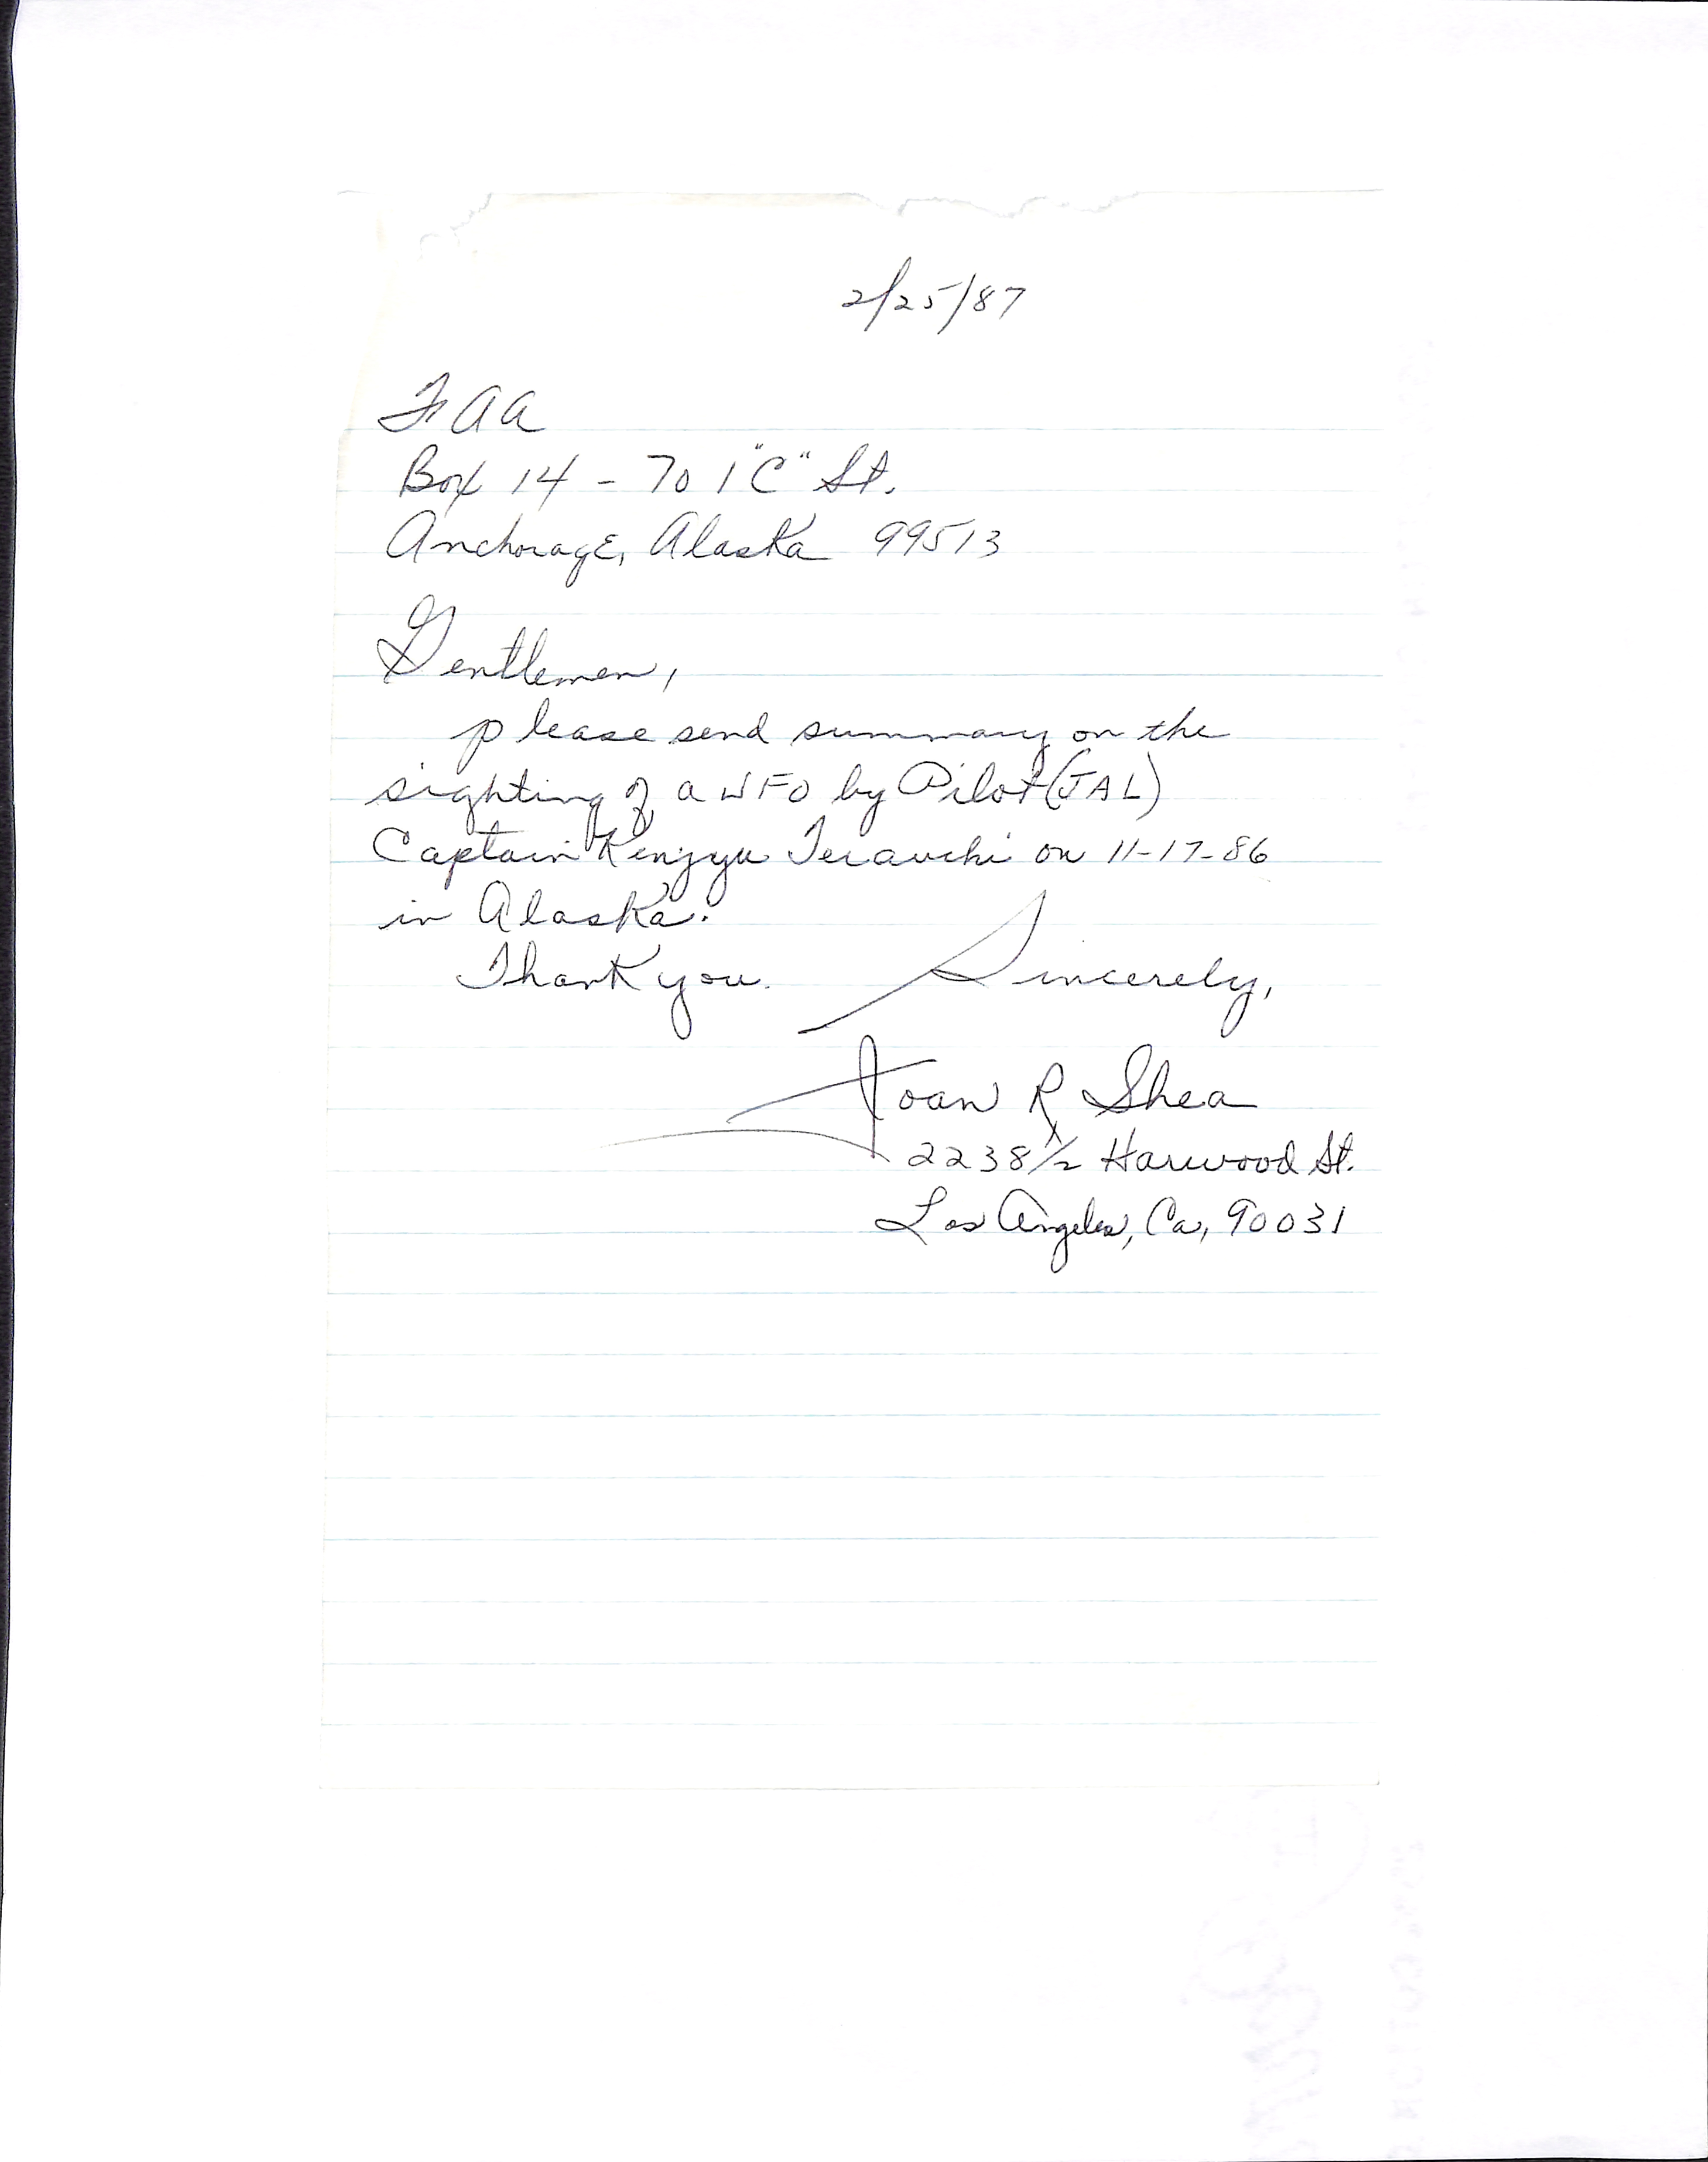 2/25/87
FAA
Box 14 - 701 "C" St.
Anchorage, Alaska 99513
Gentlemen,
please send summary on the
sighting of a UFO by Pilot (JAL)
Captain Kenjyu Terauchi on 11-17-86
in Alaska.
Thank you. Sincerely,
Joan R Shea
2238 1/2 Harwood St.
Los Angeles, Ca, 90031